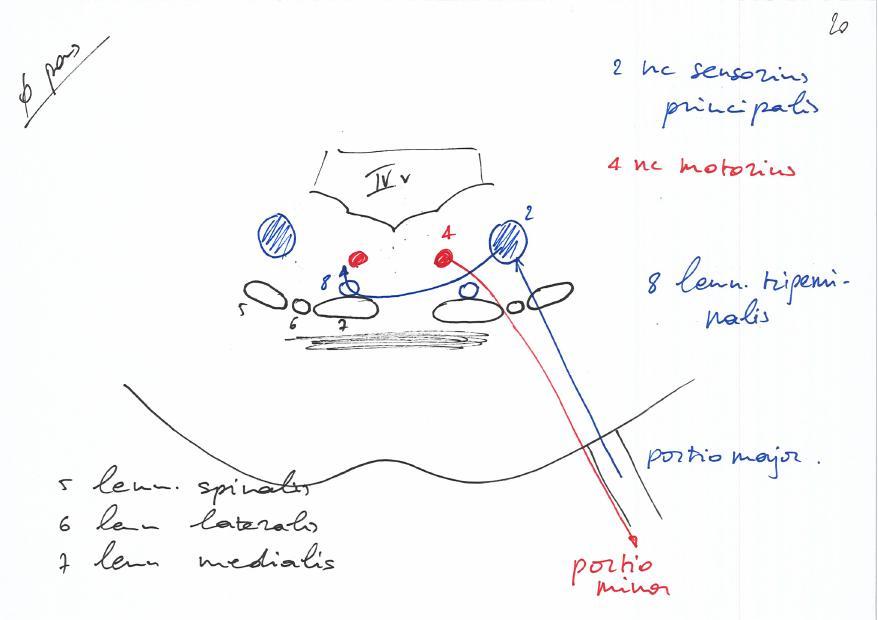 20
φ pons
2 nc sensorius
principalis
IV v
4 nc motorius
2
4
8
5
6
7
8 lemn. trigemi-
nalis
portio major.
5 lemn. spinalis
6 lem lateralis
7 lem medialis
portio
minor